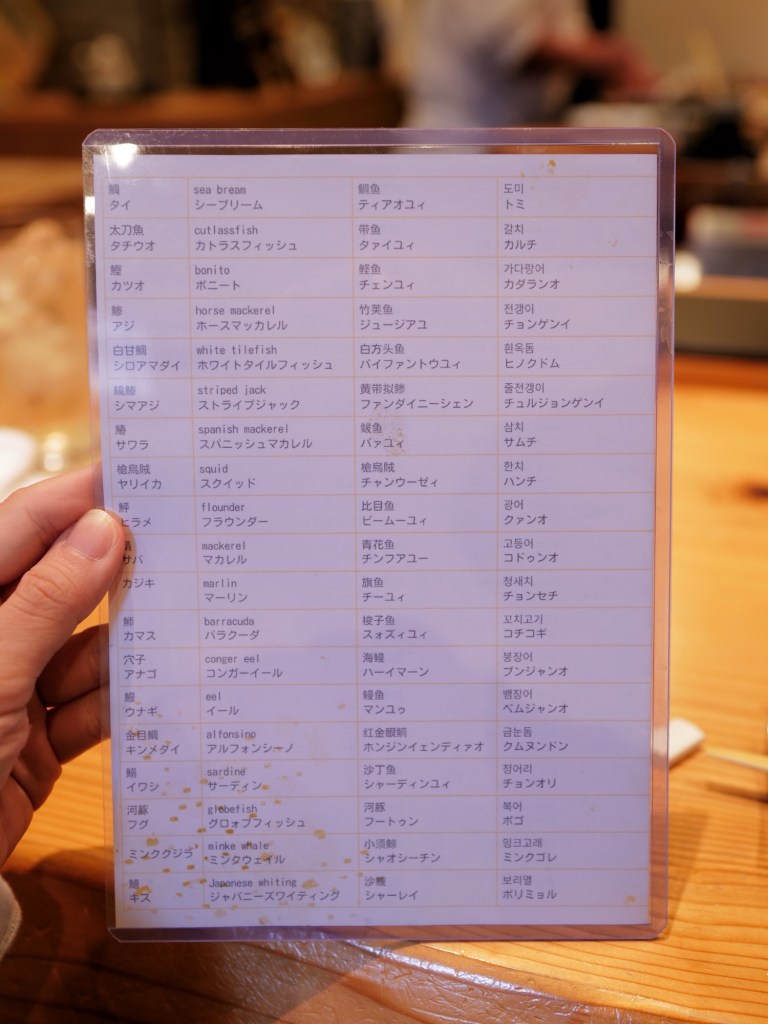 鯛 sea bream 鯛鱼 도미
タイ シーブリーム ティアオユィ トミ
太刀魚 cutlassfish 带鱼 갈치
タチウオ カトラスフィッシュ タァイユィ カルチ
鰹 bonito 鲣鱼 가다랑어
カツオ ボニート チェンユィ カダランオ
鯵 horse mackerel 竹荚鱼 전갱이
アジ ホースマッカレル ジュージアユ チョンゲンイ
白甘鯛 white tilefish 白方头鱼 흰옥돔
シロアマダイ ホワイトタイルフィッシュ バイファントウユィ ヒノクドム
縞鯵 striped jack 黄带拟鲹 줄전갱이
シマアジ ストライプジャック ファンダイニーシェン チュルジョンゲンイ
鰆 spanish mackerel 鲅鱼 삼치
サワラ スパニッシュマカレル バァユィ サムチ
槍烏賊 squid 槍烏贼 한치
ヤリイカ スクイッド チャンウーゼィ ハンチ
鮃 flounder 比目鱼 광어
ヒラメ フラウンダー ビームーユィ クァンオ
mackerel 青花鱼 고등어
サバ マカレル チンフアユー コドゥンオ
カジキ marlin 旗鱼 청새치
マーリン チーユィ チョンセチ
barracuda 梭子鱼 꼬치고기
カマス バラクーダ スォズィユィ コチコギ
穴子 conger eel 海鳗 붕장어
アナゴ コンガーイール ハーイマーン プンジャンオ
鰻 eel 鳗鱼 뱀장어
ウナギ イール マンユゥ ベムジャンオ
金目鯛 alfonsino 红金眼鲷 금눈돔
キンメダイ アルフォンシーノ ホンジンイェンディァオ クムヌンドン
鰯 sardine 沙丁鱼 정어리
イワシ サーディン シャーディンユィ チョンオリ
河豚 globefish 河豚 복어
フグ グロォブフィッシュ フートゥン ボゴ
ミンククジラ minke whale 小须鲸 밍크고래
ミンクウェイル シャオシーチン ミンクゴレ
鱚 Japanese whiting 沙鱵 보리멸
キス ジャパニーズワイティング シャーレイ ポリミョル